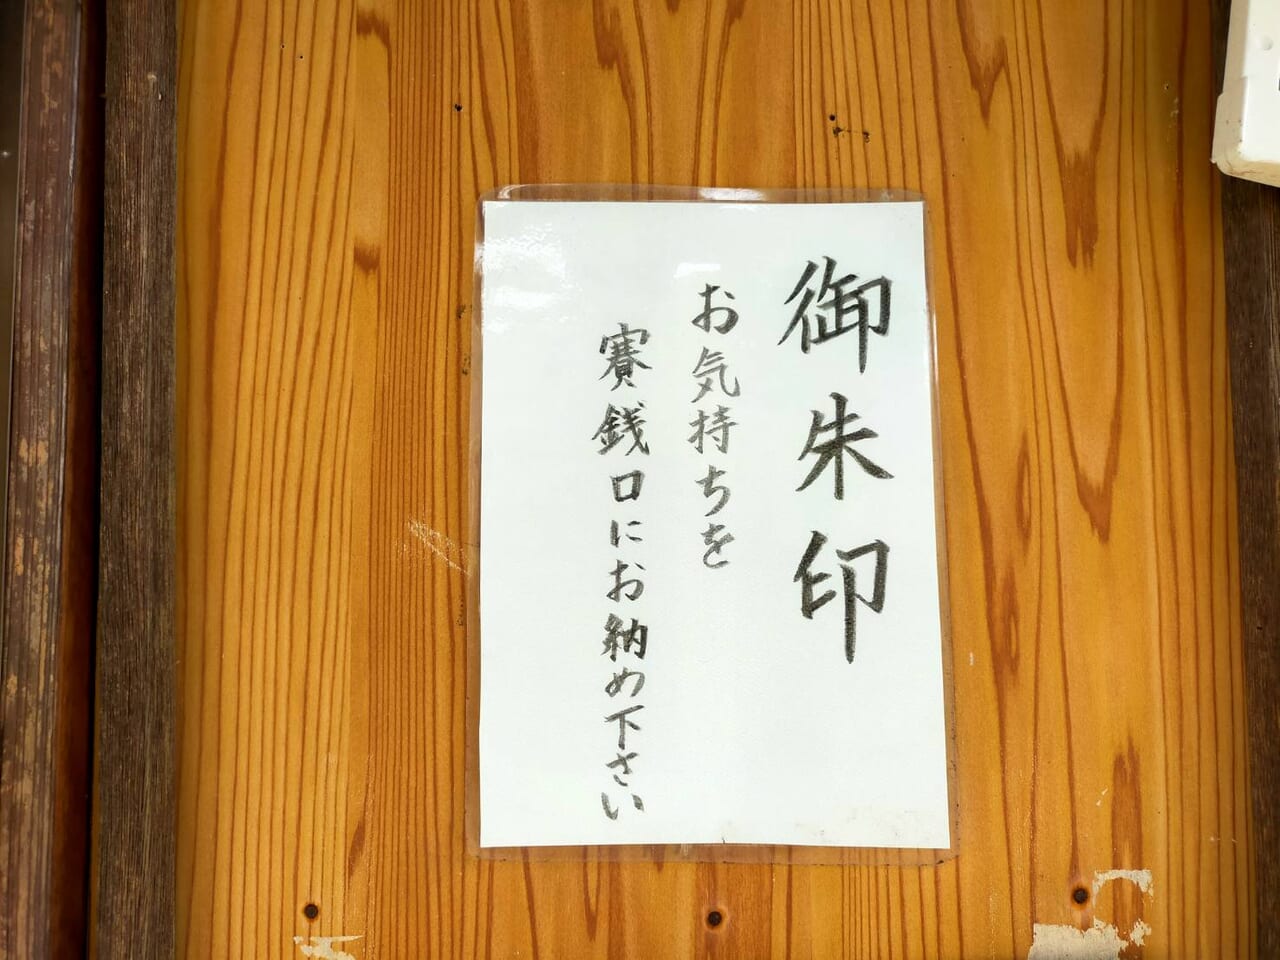 御朱印
お気持ちを
賽銭口にお納め下さい